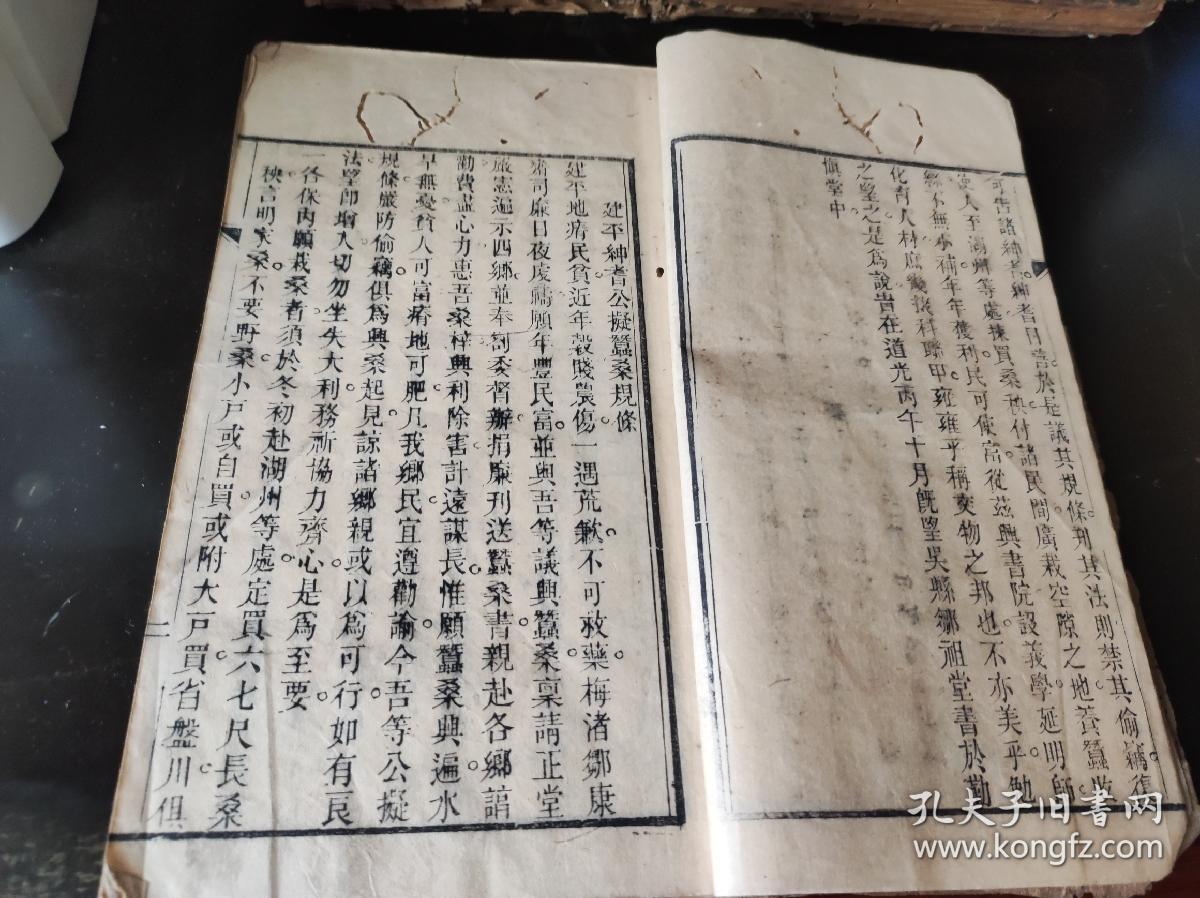 可告諸紳耆紳耆曰善於是議其規條刊其法則禁其偷竊復
人至湖州等處揀買桑秧付諸民間廣栽空隙之地養蠶收
絲不無小補年年獲利民可使富從茲興書院設義學延明師
化育人材庶幾掇科聯甲雍雍乎稱文物之邦也不亦美乎勉
之望之是為說旹在道光丙午十月既望吳縣鄒祖堂書於勤
慎堂中
建平紳耆公擬蠶桑規條
建平地瘠民貧近年穀賤農傷一遇荒歉不可救藥梅渚鄒康
齋司廉日夜虔禱願年豐民富並與吾等議興蠶桑稟請正堂
嚴憲遍示四鄉並奉劄委督辦捐廉刊送蠶桑書親赴各鄉諳
勸費盡心力惠吾桑梓興利除害計遠謀長惟願蠶桑興遍水
旱無憂貧人可富瘠地可肥凡我鄉民宜遵勸諭今吾等公擬
規條嚴防偷竊俱為興桑起見諒諸鄉親或以為可行如有良
法望即增入切勿坐失大利務祈協力齊心是為至要
一各保內願栽桑者須於冬初赴湖州等處定買六七尺長桑
秧言明家桑不要野桑小戶或自買或附大戶買省盤川俱
二
孔夫子旧书网
www.kongfz.com